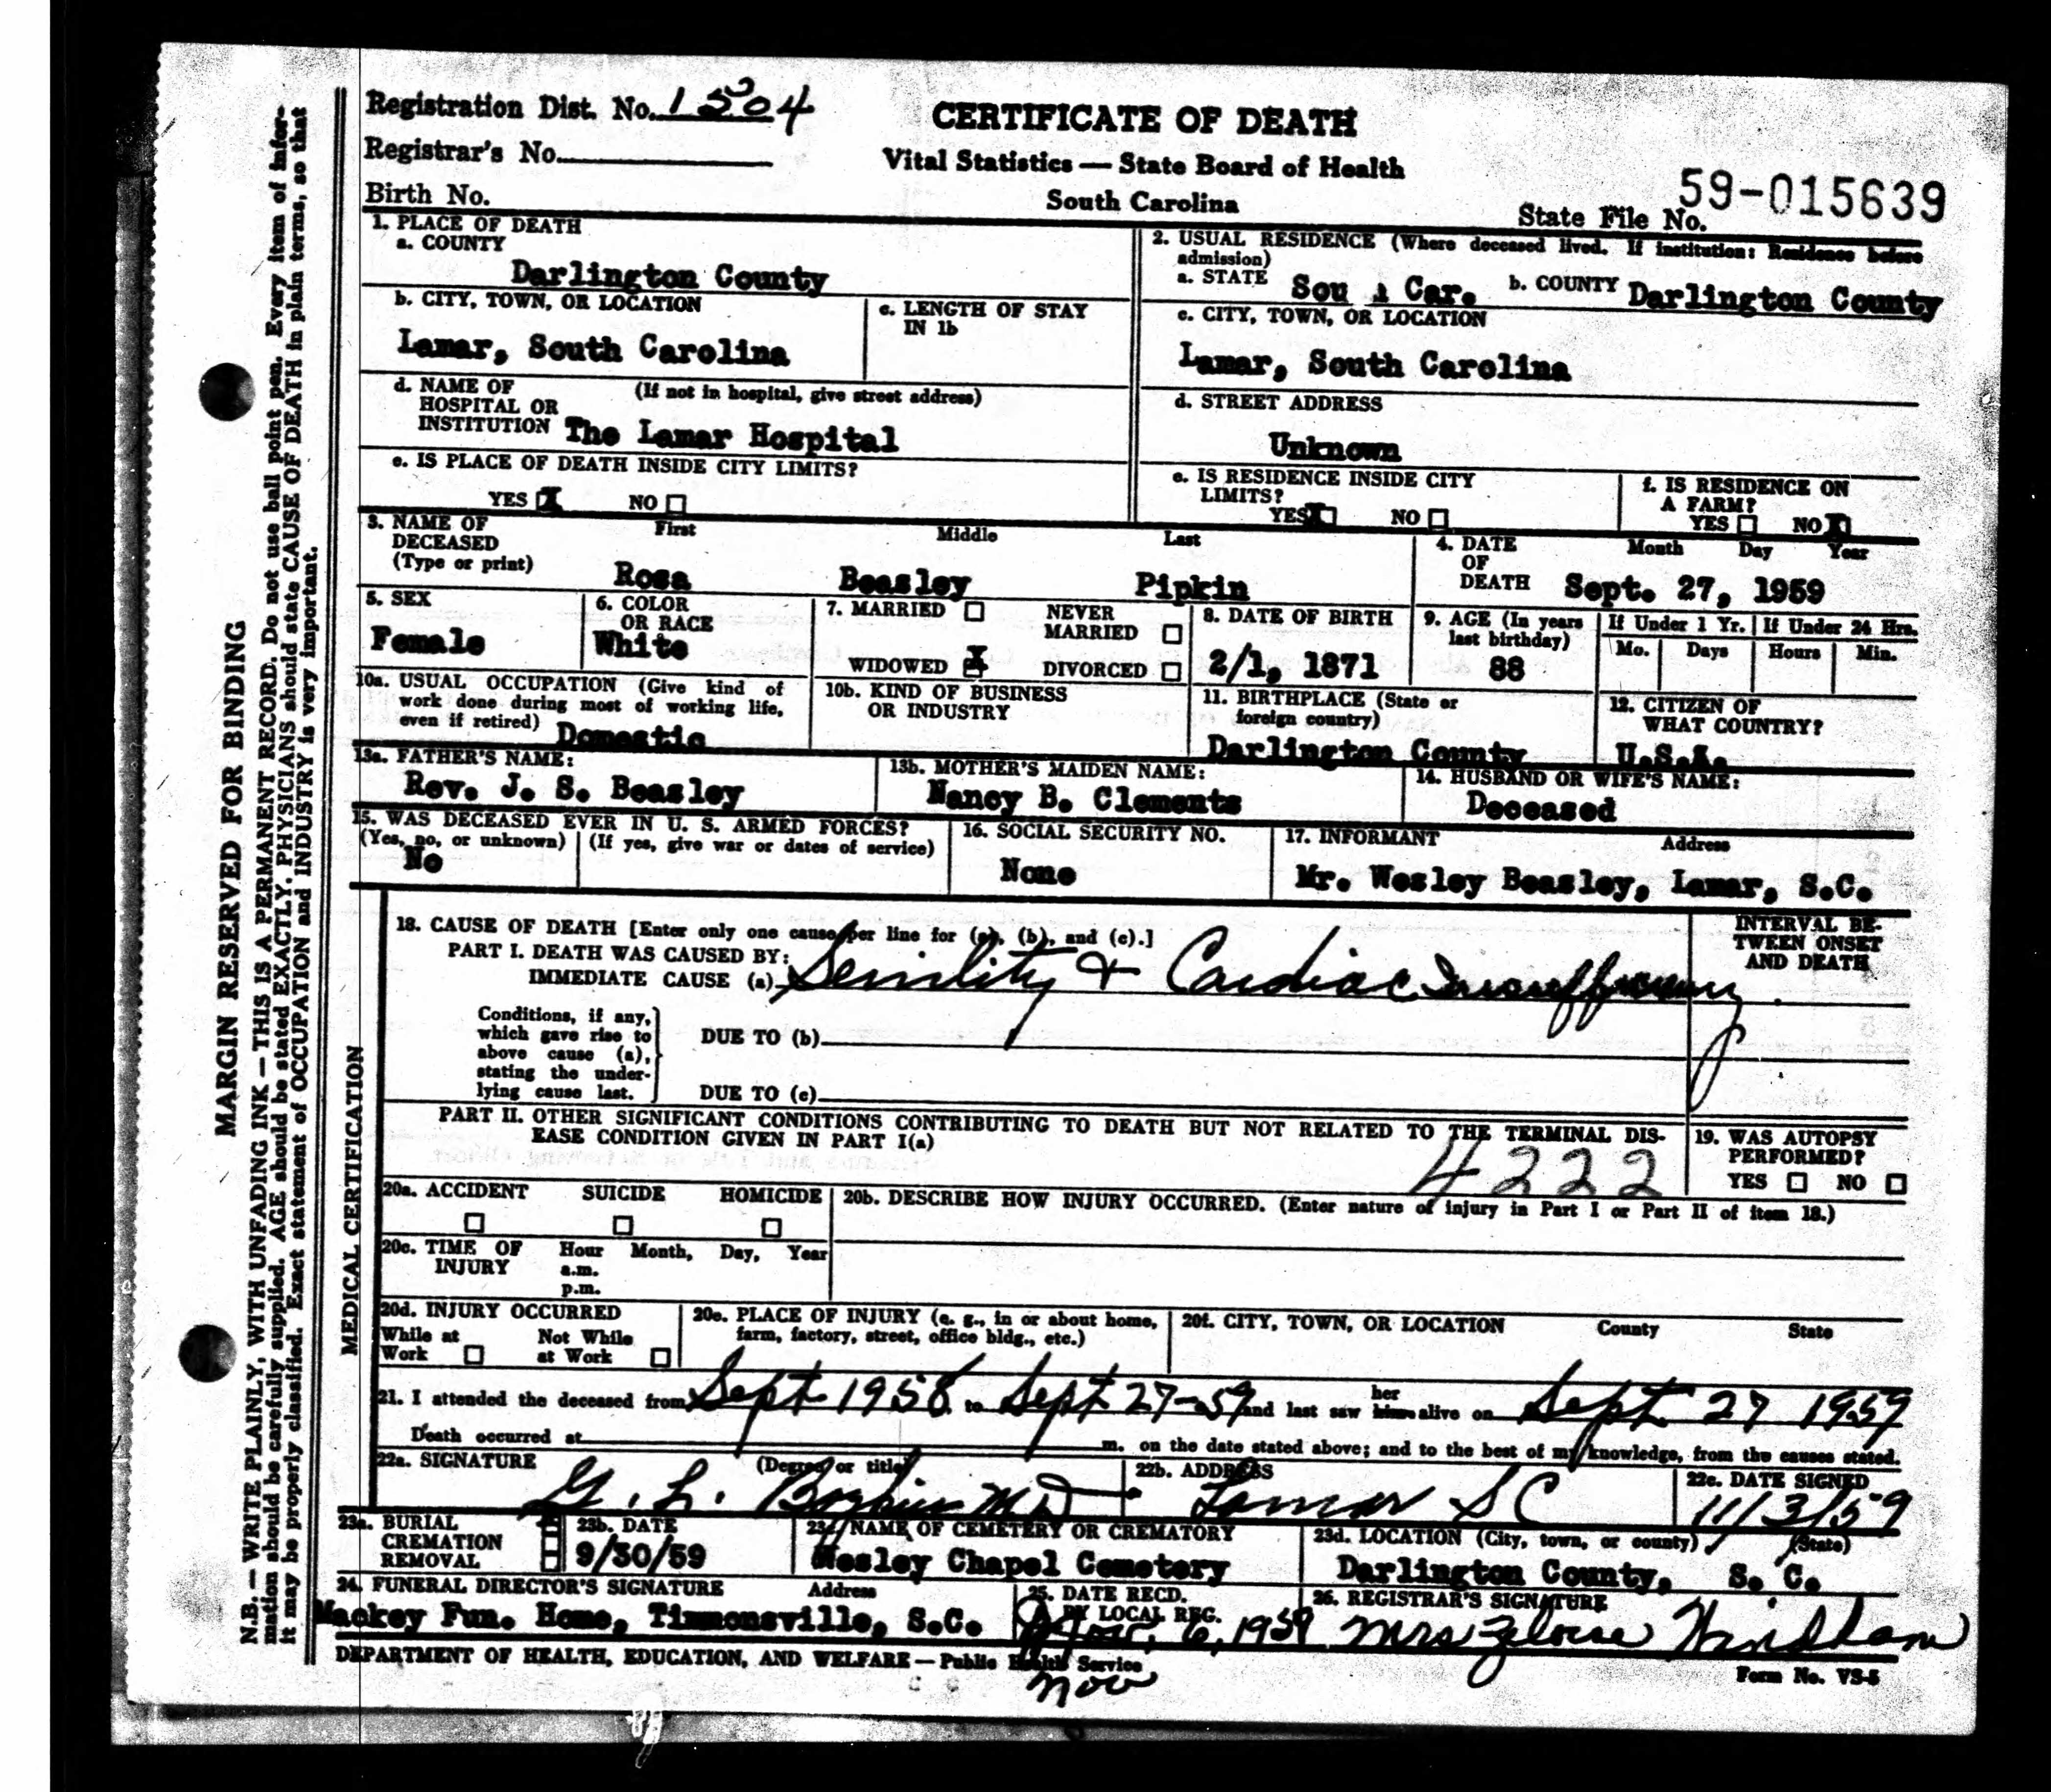 MARGIN RESERVED FOR BINDING
N.B.— WRITE PLAINLY, WITH UNFADING INK — THIS IS A PERMANENT RECORD. Do not use ball point pen. Every item of infor-
mation should be carefully supplied. AGE should be stated EXACTLY. PHYSICIANS should state CAUSE OF DEATH in plain terms, so that
it may be properly classified. Exact statement of OCCUPATION and INDUSTRY is very important.
Registration Dist. No. 1504
CERTIFICATE OF DEATH
Registrar's No.
Vital Statistics — State Board of Health
Birth No.
South Carolina
State File No. 59-015639
1. PLACE OF DEATH
a. COUNTY
Darlington County
2. USUAL RESIDENCE (Where deceased lived. If institution: Residence before
admission)
a. STATE Sou Car. b. COUNTY Darlington County
b. CITY, TOWN, OR LOCATION
Lamar, South Carolina
c. LENGTH OF STAY
IN 1b
c. CITY, TOWN, OR LOCATION
Lamar, South Carolina
d. NAME OF (If not in hospital, give street address)
HOSPITAL OR
INSTITUTION The Lamar Hospital
d. STREET ADDRESS
Unknown
e. IS PLACE OF DEATH INSIDE CITY LIMITS?
YES X NO
e. IS RESIDENCE INSIDE CITY
LIMITS?
YES X NO
f. IS RESIDENCE ON
A FARM?
YES NO X
3. NAME OF
DECEASED
(Type or print)
First Middle Last
Rosa Beasley Pipkin
4. DATE
OF
DEATH
Month Day Year
Sept. 27, 1959
5. SEX
Female
6. COLOR
OR RACE
White
7. MARRIED NEVER
MARRIED
WIDOWED X DIVORCED
8. DATE OF BIRTH
2/1, 1871
9. AGE (In years
last birthday)
88
If Under 1 Yr. If Under 24 Hrs.
Mo. Days Hours Min.
10a. USUAL OCCUPATION (Give kind of
work done during most of working life,
even if retired) Domestic
10b. KIND OF BUSINESS
OR INDUSTRY
11. BIRTHPLACE (State or
foreign country)
Darlington County
12. CITIZEN OF
WHAT COUNTRY?
U.S.A.
13a. FATHER'S NAME:
Rev. J. S. Beasley
13b. MOTHER'S MAIDEN NAME:
Nancy B. Clements
14. HUSBAND OR WIFE'S NAME:
Deceased
15. WAS DECEASED EVER IN U. S. ARMED FORCES?
(Yes, no, or unknown) (If yes, give war or dates of service)
No
16. SOCIAL SECURITY NO.
None
17. INFORMANT Address
Mr. Wesley Beasley, Lamar, S.C.
MEDICAL CERTIFICATION
18. CAUSE OF DEATH [Enter only one cause per line for (a), (b), and (c).]
PART I. DEATH WAS CAUSED BY:
IMMEDIATE CAUSE (a) Senility & Cardiac Insufficiency
INTERVAL BE-
TWEEN ONSET
AND DEATH
Conditions, if any,
which gave rise to
above cause (a),
stating the under-
lying cause last.
DUE TO (b)
DUE TO (c)
PART II. OTHER SIGNIFICANT CONDITIONS CONTRIBUTING TO DEATH BUT NOT RELATED TO THE TERMINAL DIS-
EASE CONDITION GIVEN IN PART I(a)
4222
19. WAS AUTOPSY
PERFORMED?
YES NO
20a. ACCIDENT SUICIDE HOMICIDE
20b. DESCRIBE HOW INJURY OCCURRED. (Enter nature of injury in Part I or Part II of item 18.)
20c. TIME OF
INJURY
Hour Month, Day, Year
a.m.
p.m.
20d. INJURY OCCURRED
While at
Work
Not While
at Work
20e. PLACE OF INJURY (e. g., in or about home,
farm, factory, street, office bldg., etc.)
20f. CITY, TOWN, OR LOCATION County State
21. I attended the deceased from Sept 1958 to Sept 27-59 and last saw her him alive on Sept 27 1959
Death occurred at m. on the date stated above; and to the best of my knowledge, from the causes stated.
22a. SIGNATURE (Degree or title)
G. L. MD
22b. ADDRESS
Lamar SC
22c. DATE SIGNED
11/3/59
23a. BURIAL
CREMATION
REMOVAL
23b. DATE
9/30/59
23c. NAME OF CEMETERY OR CREMATORY
Wesley Chapel Cemetery
23d. LOCATION (City, town, or county) (State)
Darlington County, S. C.
24. FUNERAL DIRECTOR'S SIGNATURE Address
Mackey Fun. Home, Timmonsville, S.C.
25. DATE RECD.
BY LOCAL REG.
Nov. 6, 1959
26. REGISTRAR'S SIGNATURE
Mrs Windham
DEPARTMENT OF HEALTH, EDUCATION, AND WELFARE — Public Health Service
Nov
Form No. VS-5